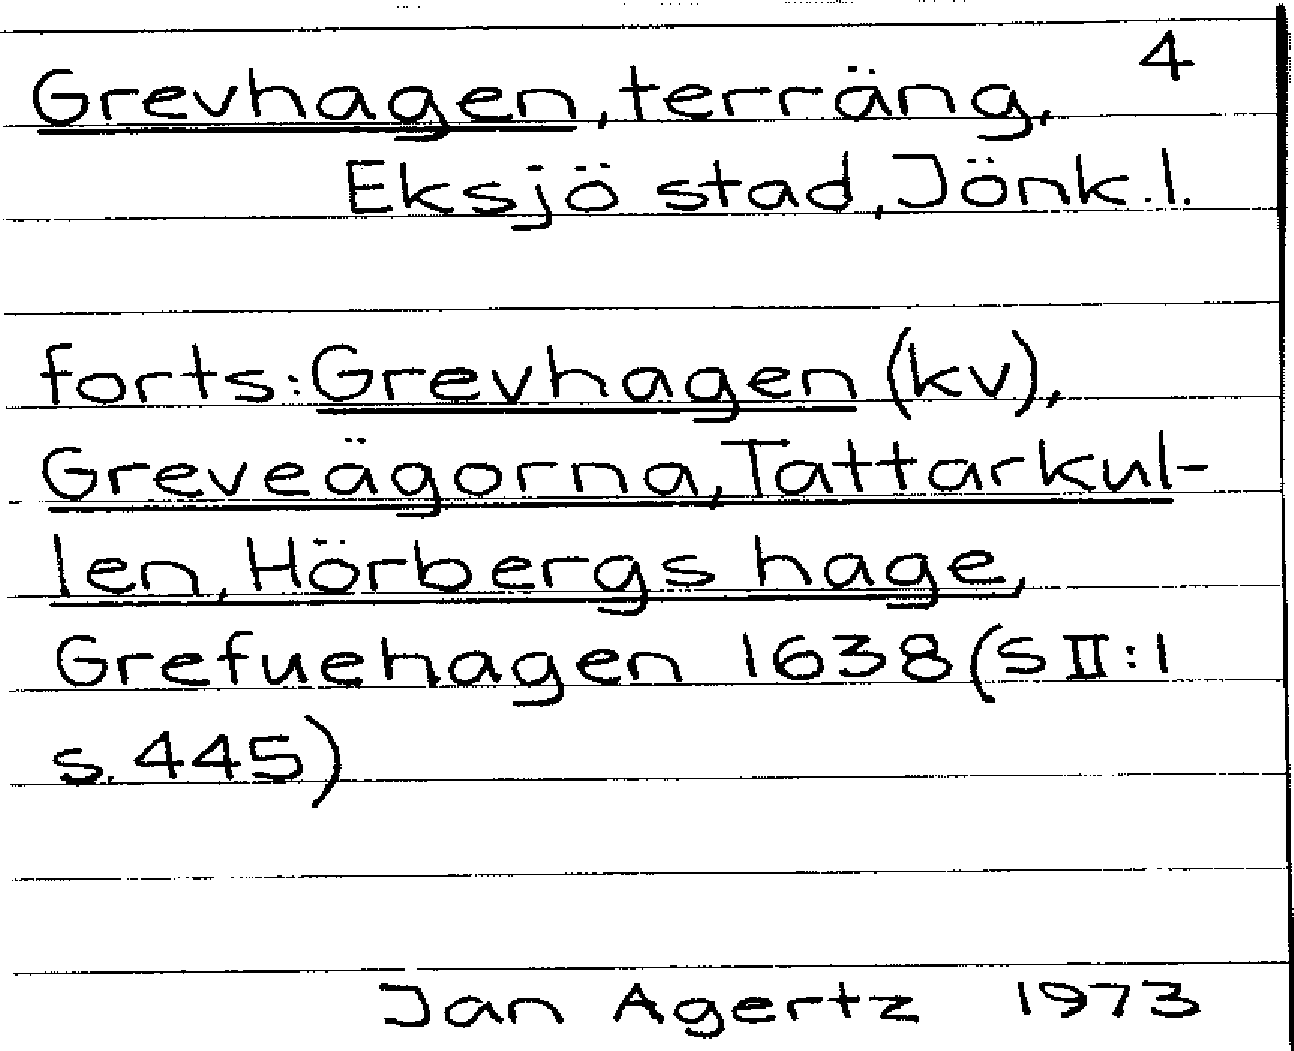 4
Grevhagen, terräng,
Eksjö stad, Jönk.l.
forts: Grevhagen (kv),
Greveägorna, Tattarkul-
len, Hörbergs hage,
Grefuehagen 1638 (S II:1
s. 445)
Jan Agertz 1973